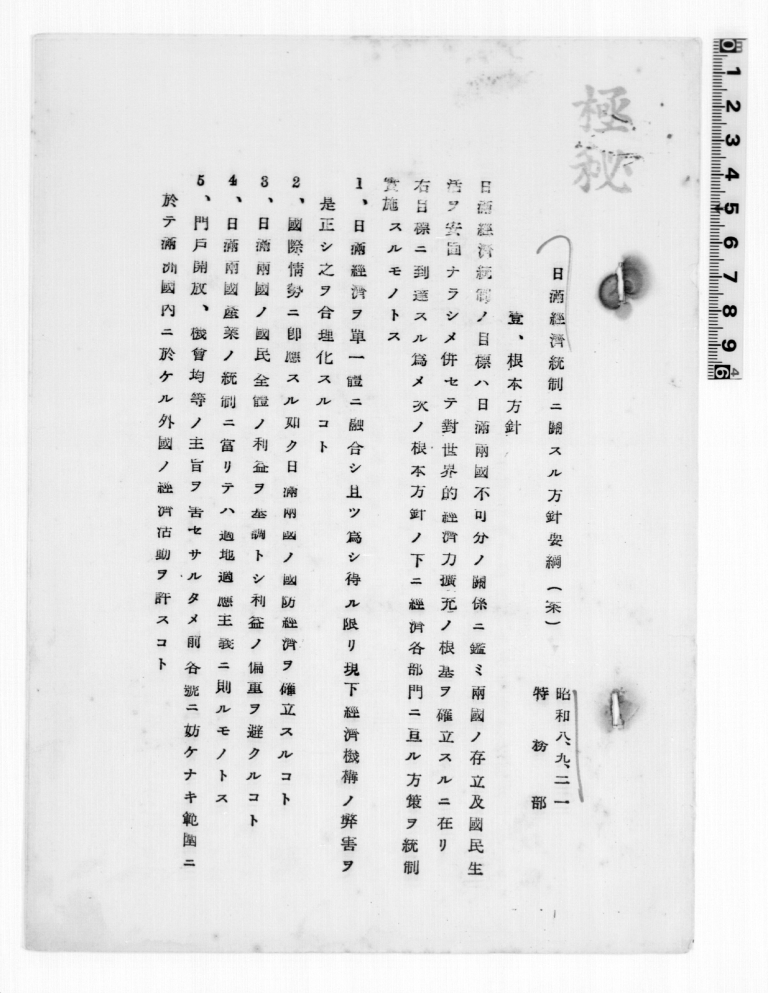 極秘
日滿經濟統制ニ關スル方針要綱（案）
昭和八、九、二一
特務部
壹、根本方針
日滿經濟統制ノ目標ハ日滿兩國不可分ノ關係ニ鑑ミ兩國ノ存立及國民生
活ヲ安固ナラシメ併セテ對世界的經濟力擴充ノ根基ヲ確立スルニ在リ
右目標ニ到達スル爲メ次ノ根本方針ノ下ニ經濟各部門ニ亘ル方策ヲ統制
實施スルモノトス
1、日滿經濟ヲ單一體ニ融合シ且ツ爲シ得ル限リ現下經濟機構ノ弊害ヲ
是正シ之ヲ合理化スルコト
2、國際情勢ニ卽應スル如ク日滿兩國ノ國防經濟ヲ確立スルコト
3、日滿兩國ノ國民全體ノ利益ヲ基調トシ利益ノ偏重ヲ避クルコト
4、日滿兩國產業ノ統制ニ當リテハ適地適應主義ニ則ルモノトス
5、門戶開放、機會均等ノ主旨ヲ害セサルタメ前各號ニ妨ケナキ範圍ニ
於テ滿洲國內ニ於ケル外國ノ經濟活動ヲ許スコト
0 1 2 3 4 5 6 7 8 9 10